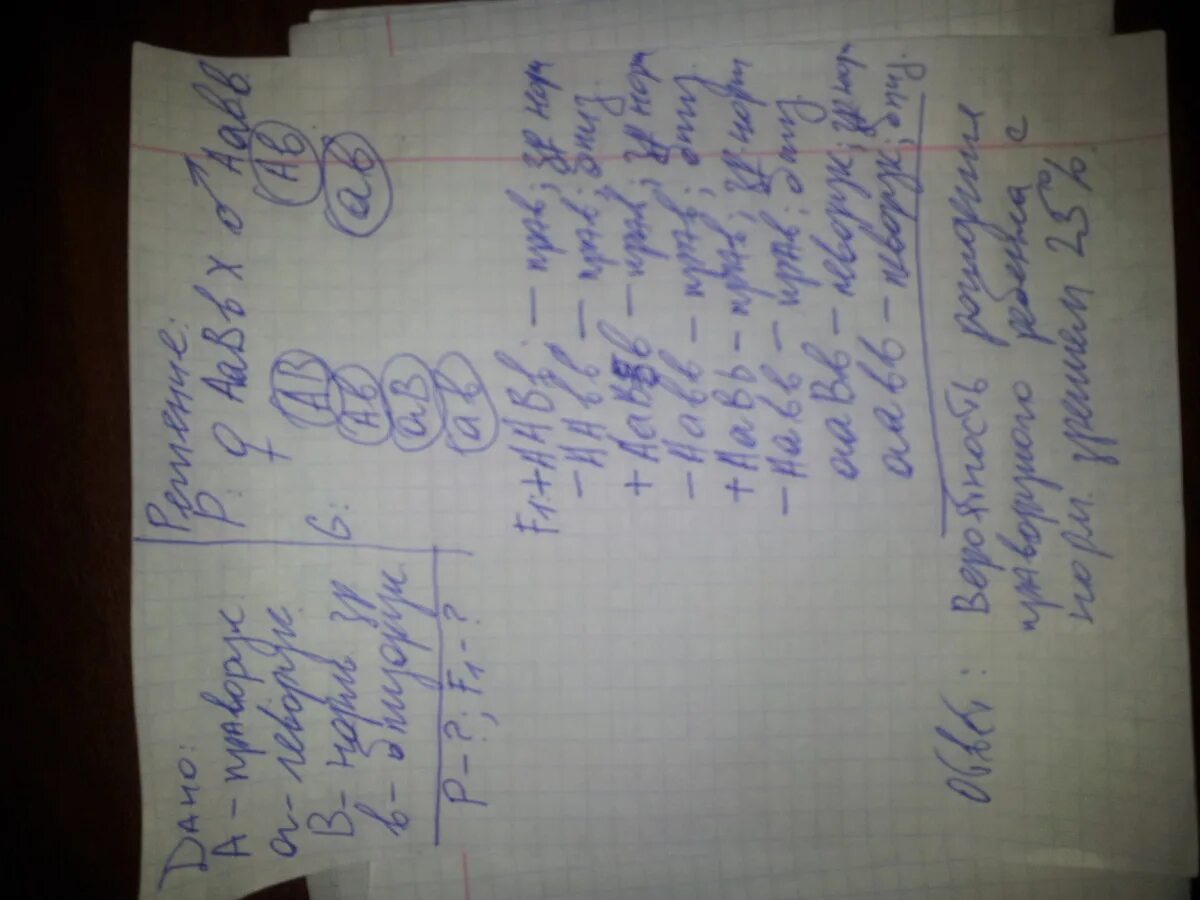 Дано:
А - праворук
а - леворук
В - норм зр
в - близорук
Р - ?; F₁ - ?
Решение:
Р: ♀ АаВв х ♂ Аавв
G: АВ Ав
Ав ав
аВ
ав
F₁: + ААВв - прав; зр норм
- ААвв - прав; близ.
+ АаВв - прав; зр норм
- Аавв - прав; близ.
+ АаВв - прав; зр норм
- Аавв - прав; близ.
ааВв - леворук; зр нор
аавв - леворук; близ.
Ответ: Вероятность рождения
праворукого ребенка с
норм. зрением 25%.